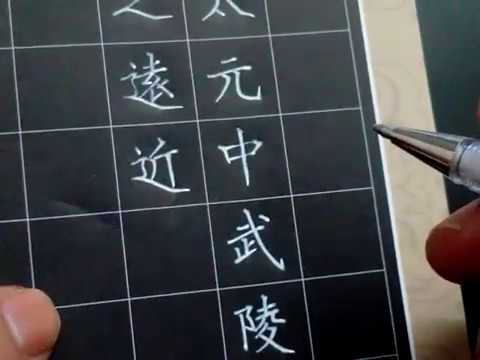 太元中武陵
之遠近